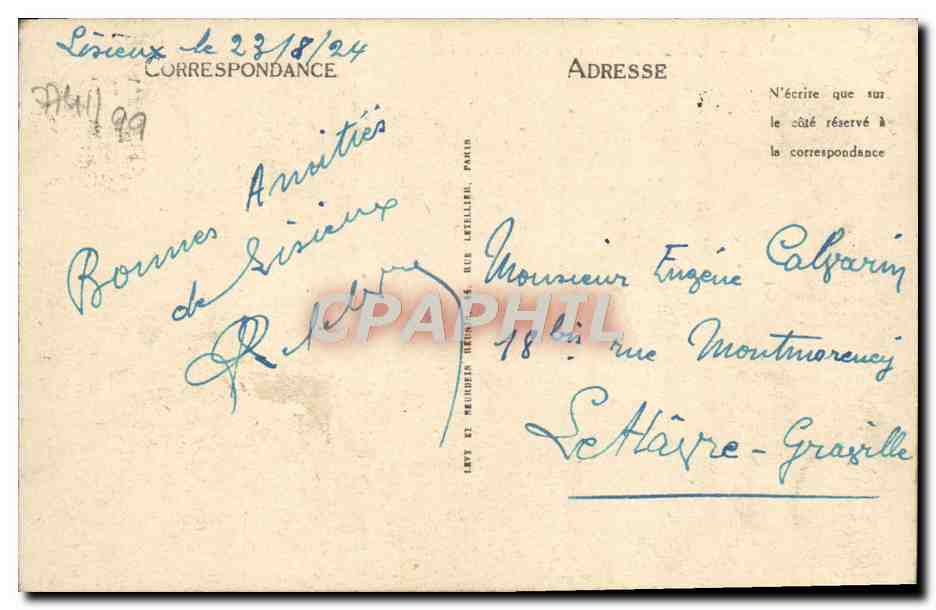 Lisieux le 23/8/24
CORRESPONDANCE
Bonnes Amitiés
de Lisieux
LEVY ET NEURDEIN RÉUNIS, 44, RUE LETELLIER, PARIS
CPAPHIL
ADRESSE
N'écrire que sur
le côté réservé à
la correspondance
Monsieur Eugène Calvarin
18 bis rue Montmorency
Le Hâvre - Graville